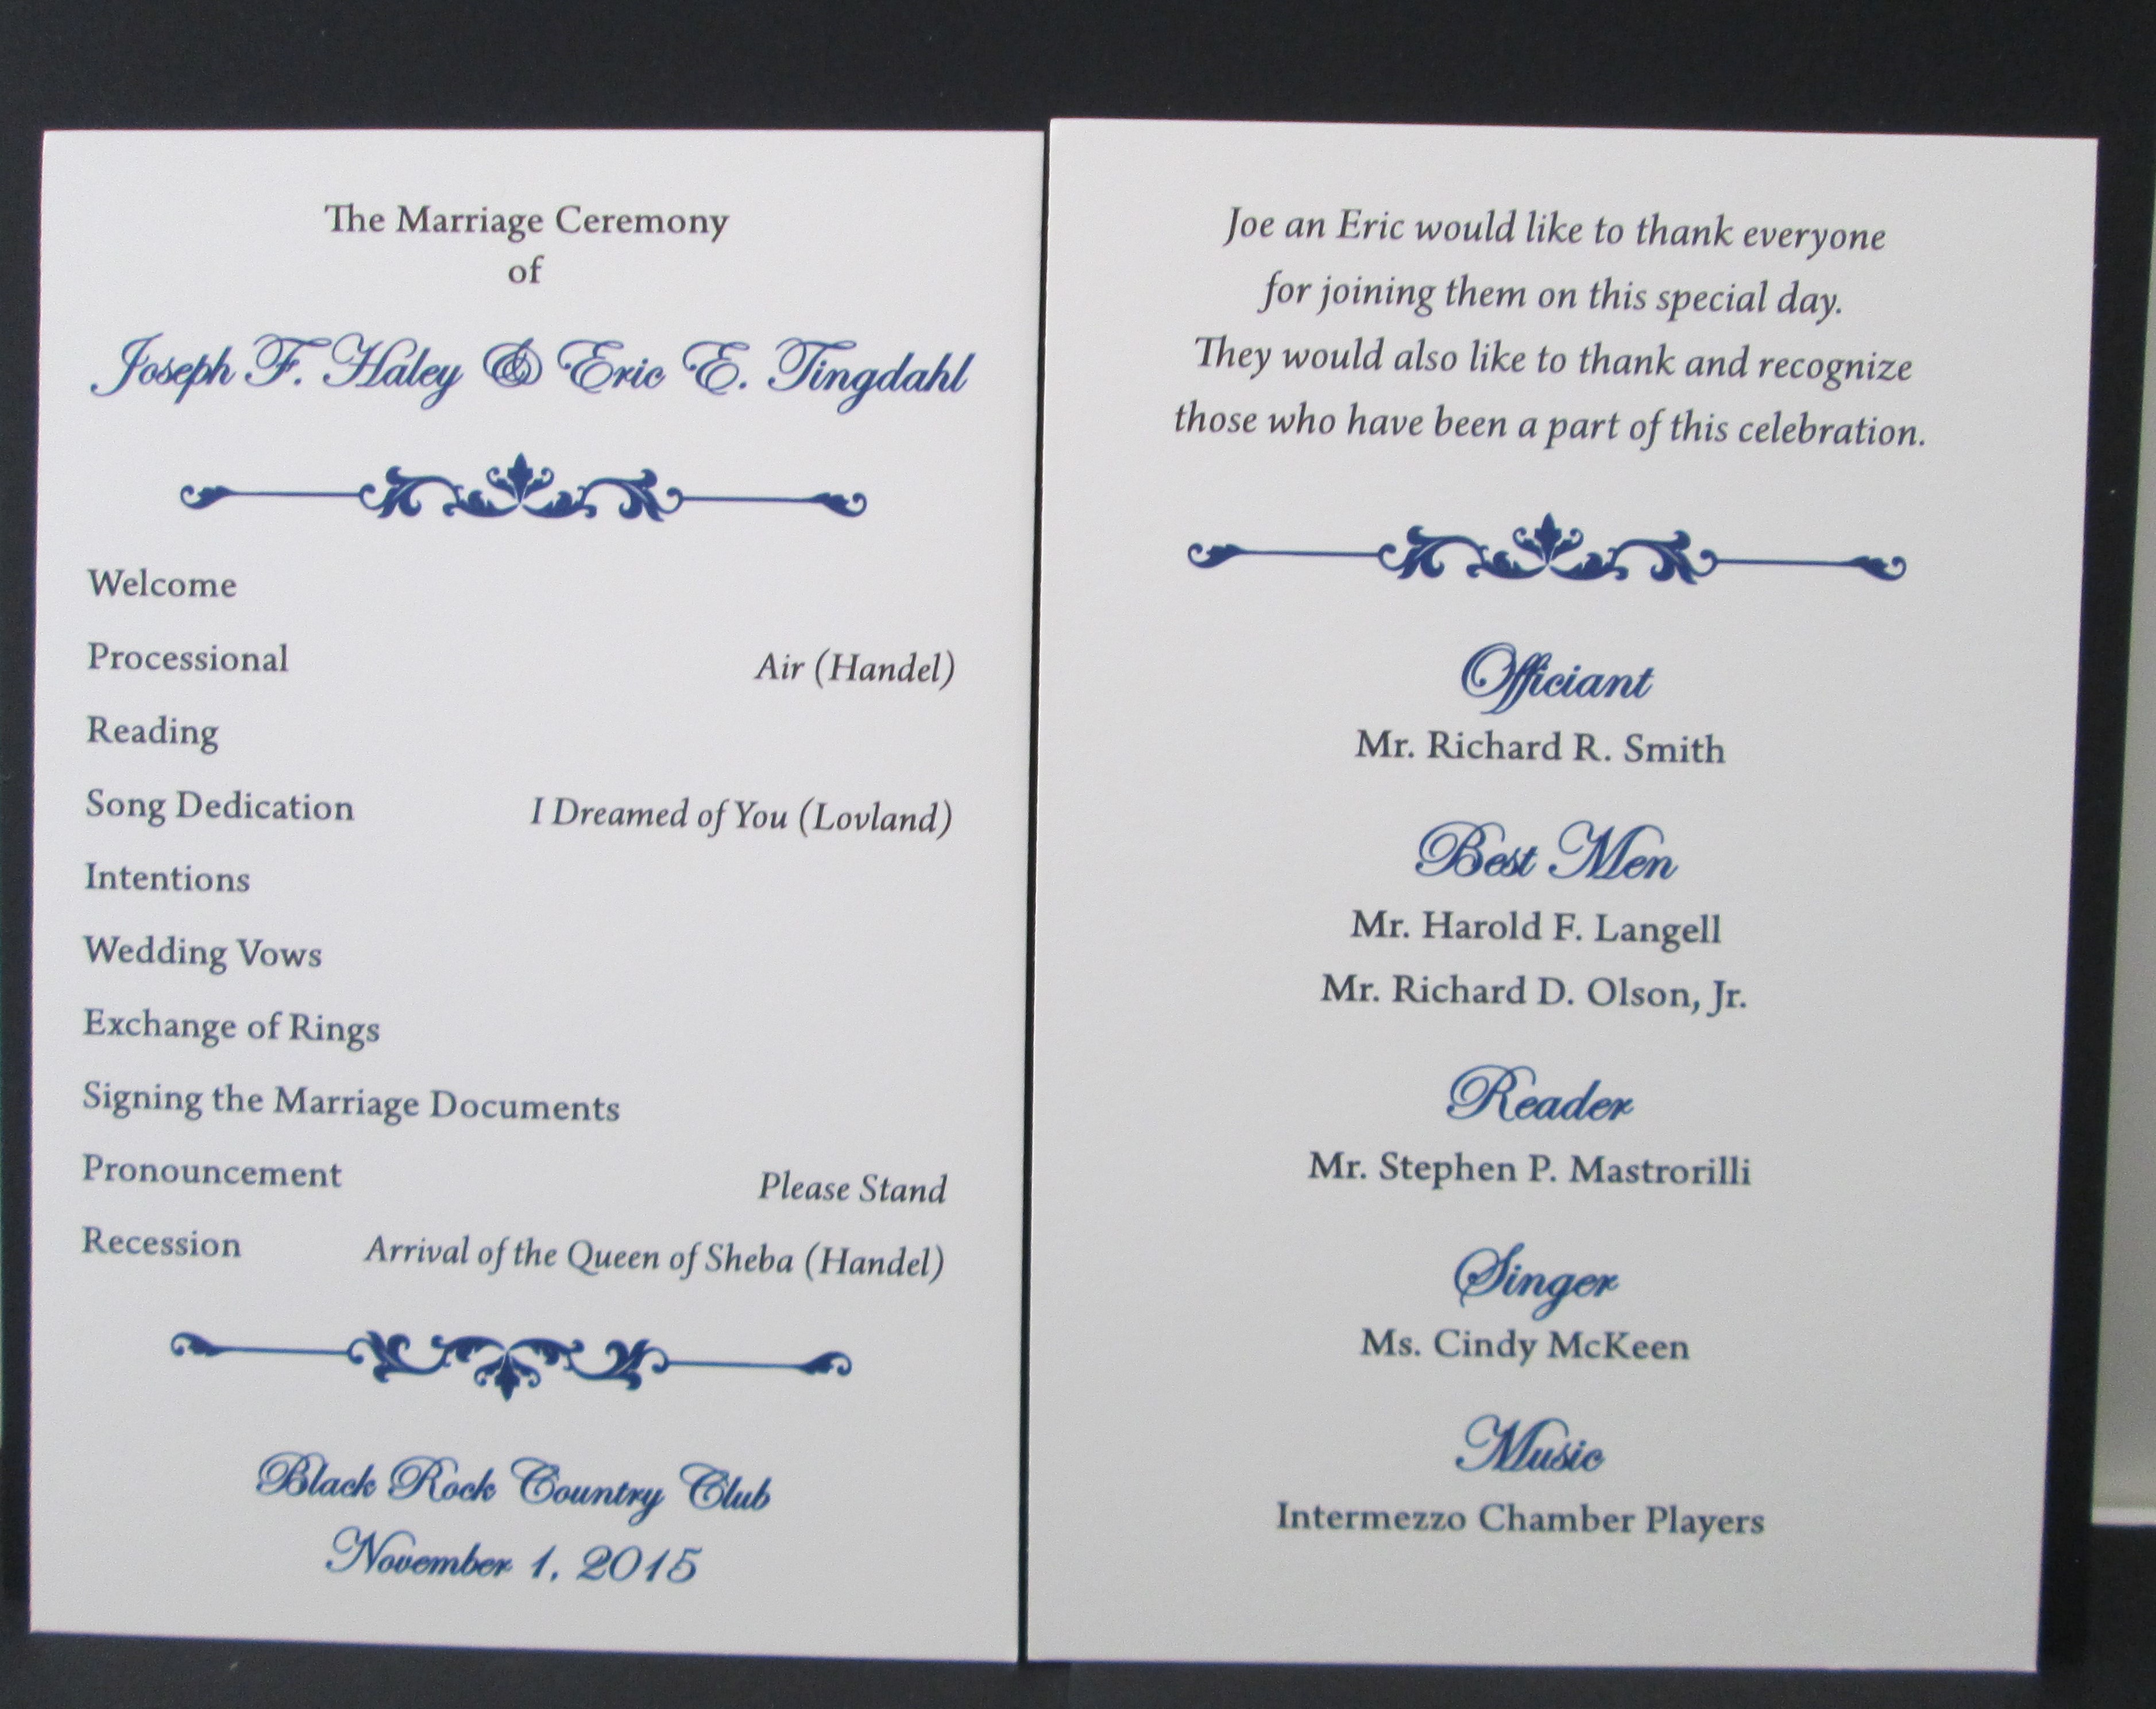 The Marriage Ceremony
of
Joseph F. Haley & Eric E. Tingdahl
Welcome
Processional Air (Handel)
Reading
Song Dedication I Dreamed of You (Lovland)
Intentions
Wedding Vows
Exchange of Rings
Signing the Marriage Documents
Pronouncement Please Stand
Recession Arrival of the Queen of Sheba (Handel)
Black Rock Country Club
November 1, 2015
Joe an Eric would like to thank everyone
for joining them on this special day.
They would also like to thank and recognize
those who have been a part of this celebration.
Officiant
Mr. Richard R. Smith
Best Men
Mr. Harold F. Langell
Mr. Richard D. Olson, Jr.
Reader
Mr. Stephen P. Mastrorilli
Singer
Ms. Cindy McKeen
Music
Intermezzo Chamber Players